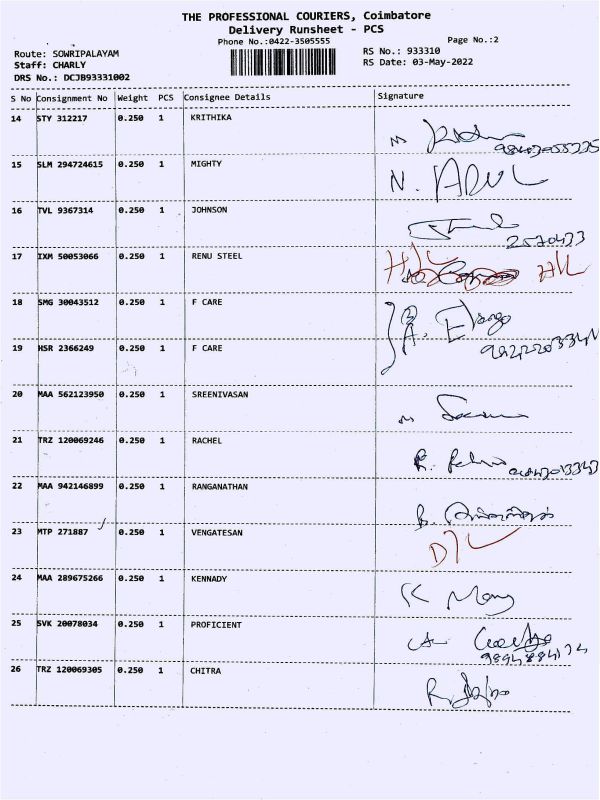 THE PROFESSIONAL COURIERS, Coimbatore
Delivery Runsheet - PCS
Phone No.:0422-3505555
Page No.:2
Route: SOWRIPALAYAM
RS No.: 933310
Staff: CHARLY
RS Date: 03-May-2022
DRS No.: DCJB93331002
S No Consignment No Weight PCS Consignee Details Signature
14 STY 312217 0.250 1 KRITHIKA
15 SLM 294724615 0.250 1 MIGHTY N. ARUL
16 TVL 9367314 0.250 1 JOHNSON
2570433
17 IXM 50053066 0.250 1 RENU STEEL
18 SMG 30043512 0.250 1 F CARE A. Elango
19 HSR 2366249 0.250 1 F CARE
20 MAA 562123950 0.250 1 SREENIVASAN
21 TRZ 120069246 0.250 1 RACHEL
22 MAA 942146899 0.250 1 RANGANATHAN
23 MTP 271887 0.250 1 VENGATESAN D/L
24 MAA 289675266 0.250 1 KENNADY
25 SVK 20078034 0.250 1 PROFICIENT
26 TRZ 120069305 0.250 1 CHITRA